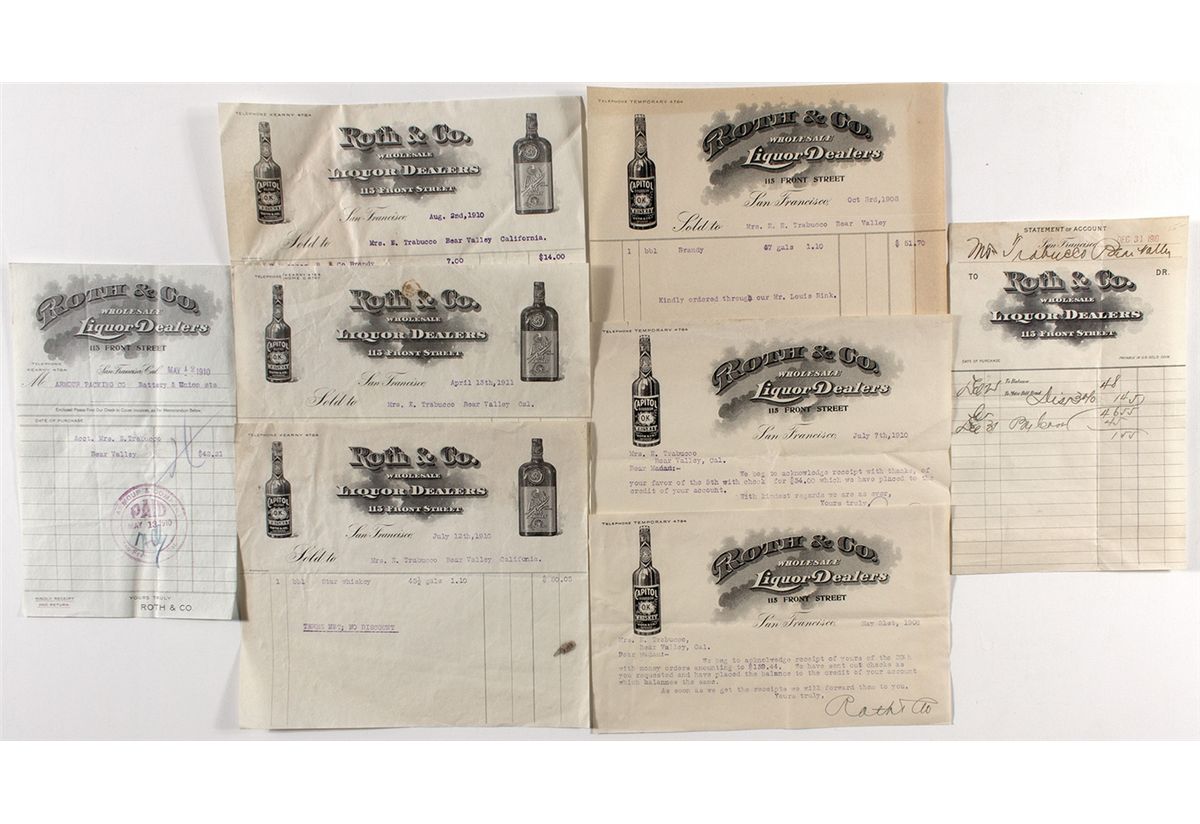 TELEPHONE KEARNY 4764
Roth & Co.
WHOLESALE
LIQUOR DEALERS
115 FRONT STREET
CAPITOL
OK
WHISKEY
San Francisco, Aug. 2nd, 1910
Sold to Mrs. E. Trabucco Bear Valley California.
Brandy 7.00 $14.00
TELEPHONE TEMPORARY 4764
ROTH & CO.
WHOLESALE
Liquor Dealers
115 FRONT STREET
CAPITOL
OK
WHISKEY
San Francisco, Oct 3rd, 1908
Sold to Mrs. E. E. Trabucco Bear Valley
1 bbl Brandy 47 gals 1.10 $ 51.70
Kindly ordered through our Mr. Louis Rink.
ROTH & CO.
WHOLESALE
Liquor Dealers
115 FRONT STREET
TELEPHONE
KEARNY 4764
San Francisco, Cal. MAY 1 1910
M ARMOUR PACKING CO Battery & Union sts
Enclosed Please Find Our Check to Cover Invoices, as Per Memorandum Below.
DATE OF PURCHASE
Acct. Mrs. E. Trabucco
Bear Valley $42.21
PAID
MAY 13 1910
KINDLY RECEIPT
AND RETURN
YOURS TRULY
ROTH & CO.
TELEPHONE KEARNY 4764
Roth & Co.
WHOLESALE
LIQUOR DEALERS
115 FRONT STREET
CAPITOL
OK
WHISKEY
San Francisco, April 13th, 1911
Sold to Mrs. E. Trabucco Bear Valley Cal.
TELEPHONE KEARNY 4764
Roth & Co.
WHOLESALE
LIQUOR DEALERS
115 FRONT STREET
CAPITOL
OK
WHISKEY
San Francisco, July 12th, 1910
Sold to Mrs. E. Trabucco Bear Valley California.
1 bbl Star whiskey 45½ gals 1.10 $ 50.05
TERMS NET; NO DISCOUNT
TELEPHONE TEMPORARY 4764
ROTH & CO.
WHOLESALE
Liquor Dealers
115 FRONT STREET
CAPITOL
OK
WHISKEY
San Francisco, July 7th, 1910
Mrs. E. Trabucco
Bear Valley, Cal.
Dear Madam:-
We beg to acknowledge receipt with thanks, of
your favor of the 5th with check for $34.00 which we have placed to the
credit of your account.
With kindest regards we are as ever,
Yours truly,
TELEPHONE TEMPORARY 4764
ROTH & CO.
WHOLESALE
Liquor Dealers
115 FRONT STREET
CAPITOL
OK
WHISKEY
San Francisco, May 21st, 1908
Mrs. E. Trabucco,
Bear Valley, Cal.
Dear Madam:-
We beg to acknowledge receipt of yours of the 20th
with money orders amounting to $139.44. We have sent out checks as
you requested and have placed the balance to the credit of your account
which balances the same.
As soon as we get the receipts we will forward them to you.
Yours truly,
Roth & Co
STATEMENT OF ACCOUNT
San Francisco, DEC 31 1910
Mrs Trabucco Bear Valley
TO DR.
Roth & Co.
WHOLESALE
LIQUOR DEALERS
115 FRONT STREET
DATE OF PURCHASE PAYABLE IN U.S. GOLD COIN
To Balance 48
To Mdse Bill Rend.